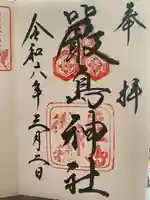 奉拝
嚴島神社
令和八年三月二日